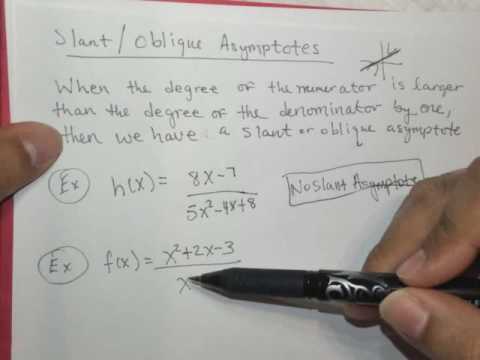 Slant / Oblique Asymptotes
When the degree of the numerator is larger
than the degree of the denominator by one,
then we have a slant or oblique asymptote
Ex h(x) = 8x-7 / 5x²-4x+8
No Slant Asymptote
Ex f(x) = x²+2x-3 / x